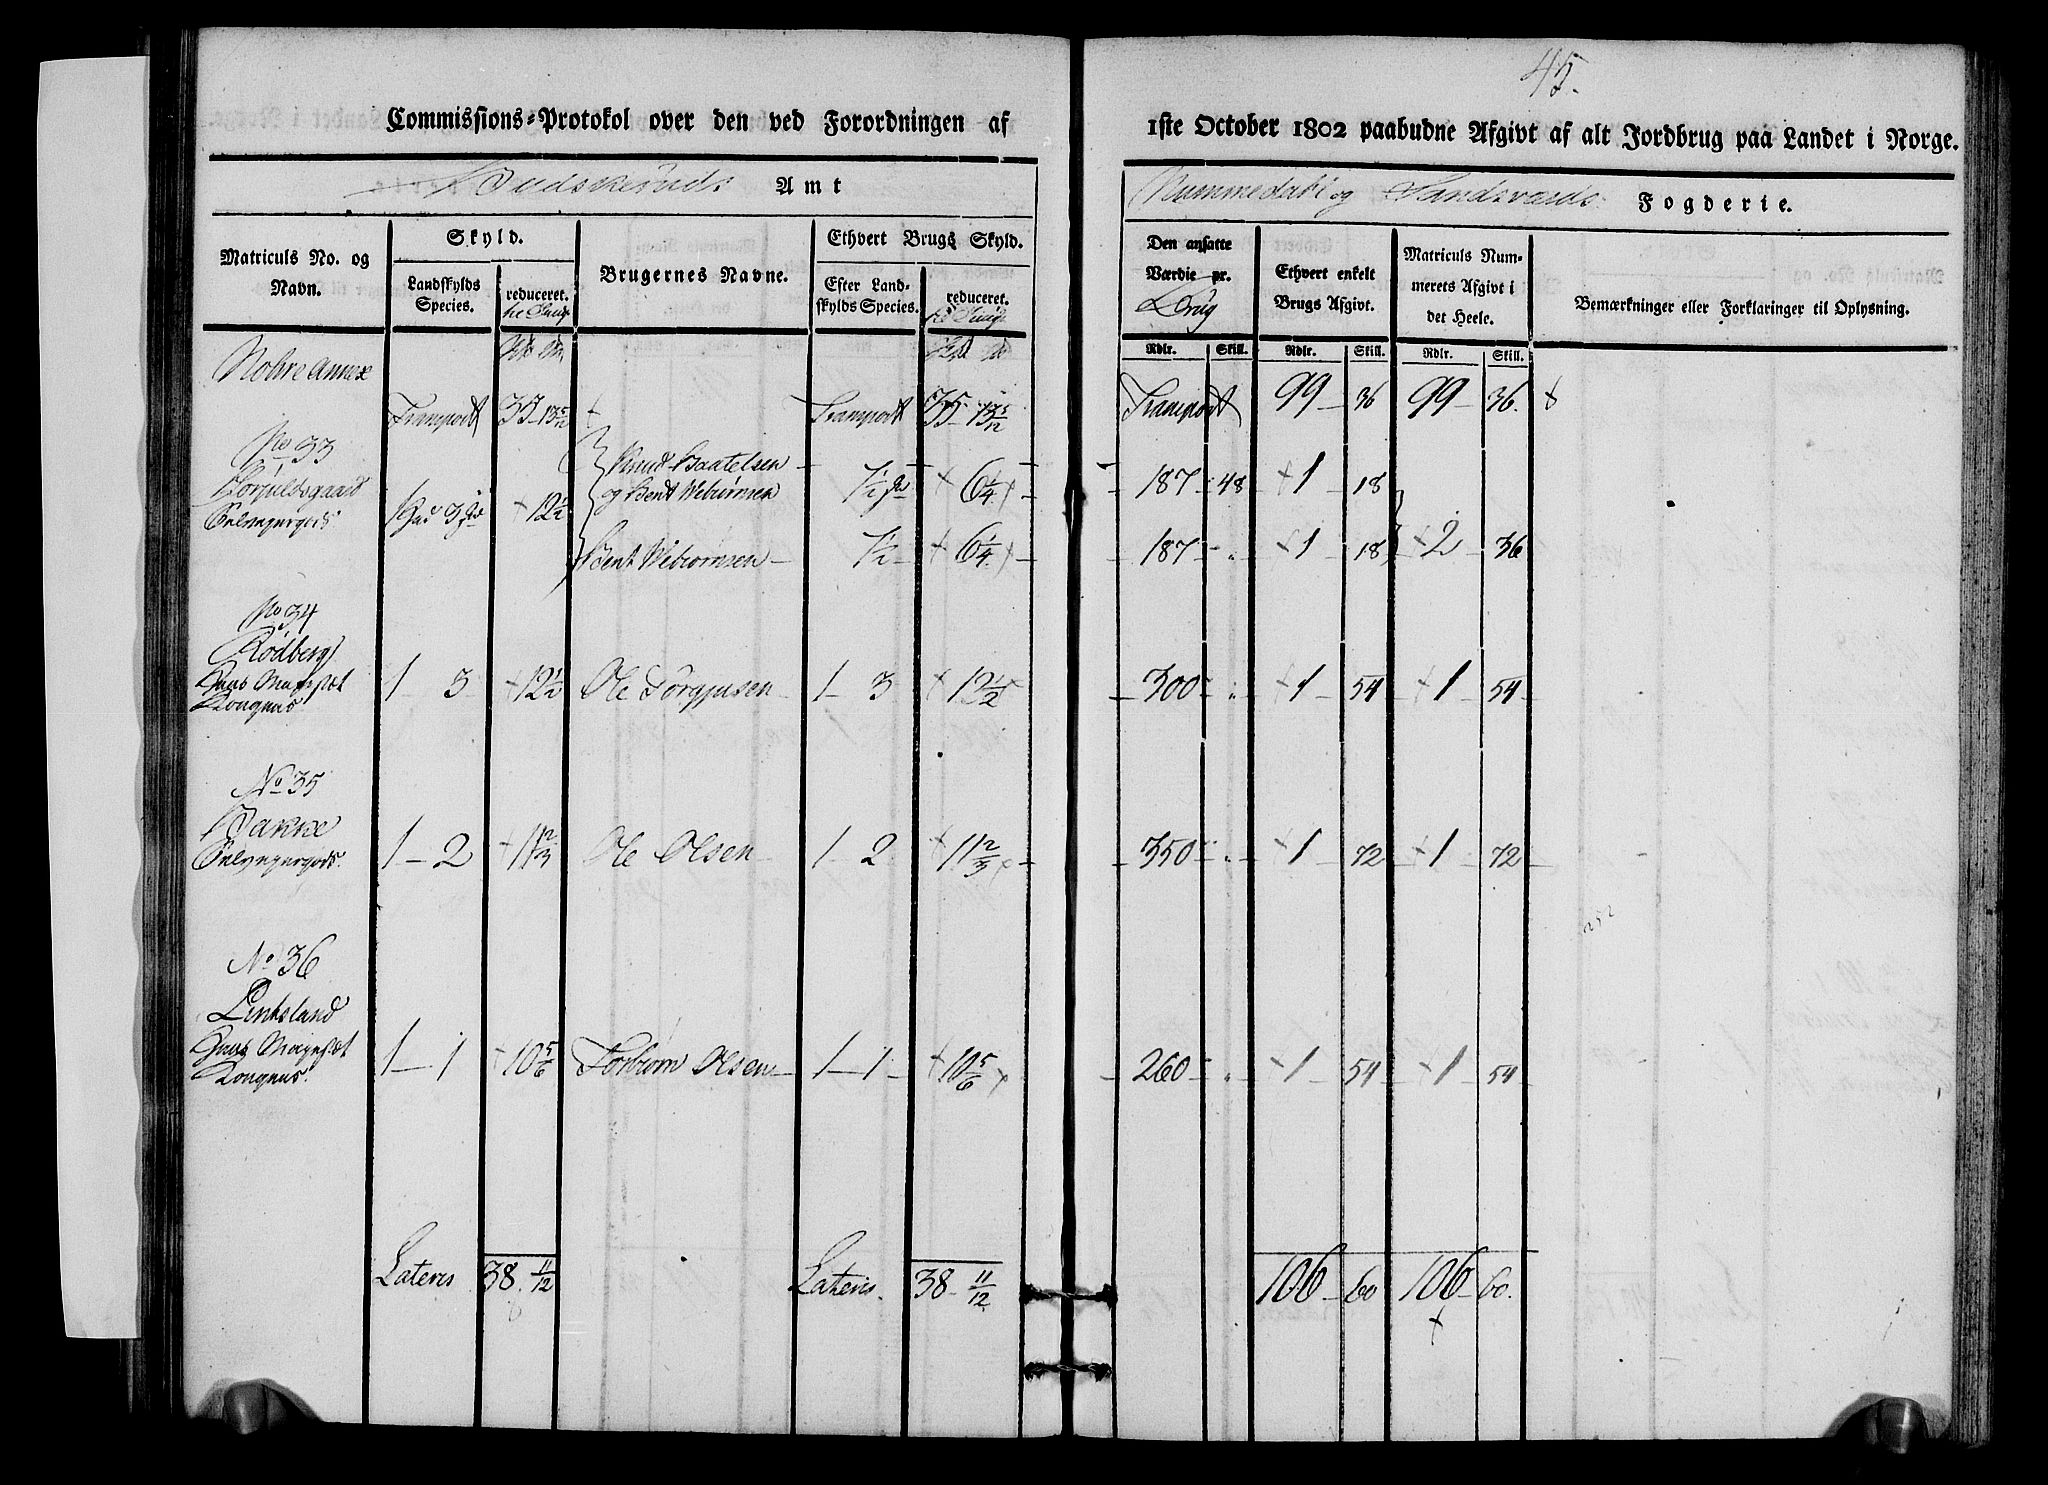 45.
Commissions-Protokol over den ved Forordningen af
1ste October 1802 paabudne Afgivt af alt Jordbrug paa Landet i Norge.
Buds Amt
Nummedals og Sandsværds Fogderie.
Matriculs No. og Navn.
Skyld.
Landskylds Species.
reduceret.
Brugernes Navne.
Ethvert Brugs Skyld.
Efter Landskylds Species.
reduceret.
Den ansatte Værdie pr. Brug
Ethvert enkelt Brugs Afgivt.
Matriculs Nummerets Afgivt i det Heele.
Bemærkninger eller Forklaringer til Oplysning.
Rdlr. Skill. Rdlr. Skill. Rdlr. Skill.
Annex
Transport 35 - 13 5/12 Transport 35 - 13 5/12 Transport 99 - 36 99 - 36.
No 33
Selveyergods 1 3 12 1/2
Knud
og Bent Webiørnsen 7 1/2 6 1/4 187 48 1 18
Bent Webiørnsen 7 1/2 6 1/4 187 " 1 18 2 36
No 34
Rødberg
1 3 12 1/2 Ole Torgjusen 1 3 12 1/2 300 " 1 54 1 54
No 35
Bakke
Selveyergods. 1 - 2 11 2/3 Ole Olsen 1 - 2 11 2/3 350 " 1 72 1 72
252
No 36
Lintsland
1 - 1 10 5/6 Torbiørn Olsen 1 - 1 10 5/6 260 " 1 54 1 54
Lateris 38 . 11/12 Lateris. 38 - 11/12 106 - 60 106 - 60.